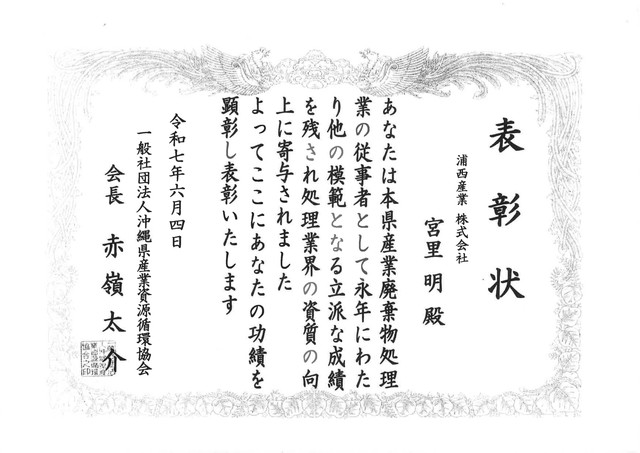 表彰状
浦西産業 株式会社
宮里 明 殿
あなたは本県産業廃棄物処理
業の従事者として永年にわた
り他の模範となる立派な成績
を残され処理業界の資質の向
上に寄与されました
よってここにあなたの功績を
顕彰し表彰いたします
令和七年六月四日
一般社団法人沖縄県産業資源循環協会
会長 赤嶺太介